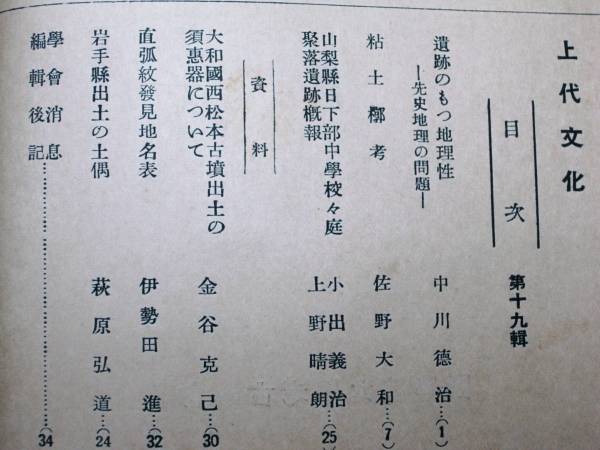 上代文化
目次
第十九輯
遺跡のもつ地理性
―先史地理の問題―
中川德治…(1)
粘土槨考
佐野大和…(7)
山梨縣日下部中學校々庭
聚落遺跡概報
小出義治
上野晴朗…(25)
資料
大和國西松本古墳出土の
須惠器について
金谷克己…(30)
直弧紋發見地名表
伊勢田進…(32)
岩手縣出土の土偶
萩原弘道…(24)
學會消息
編輯後記……(34)